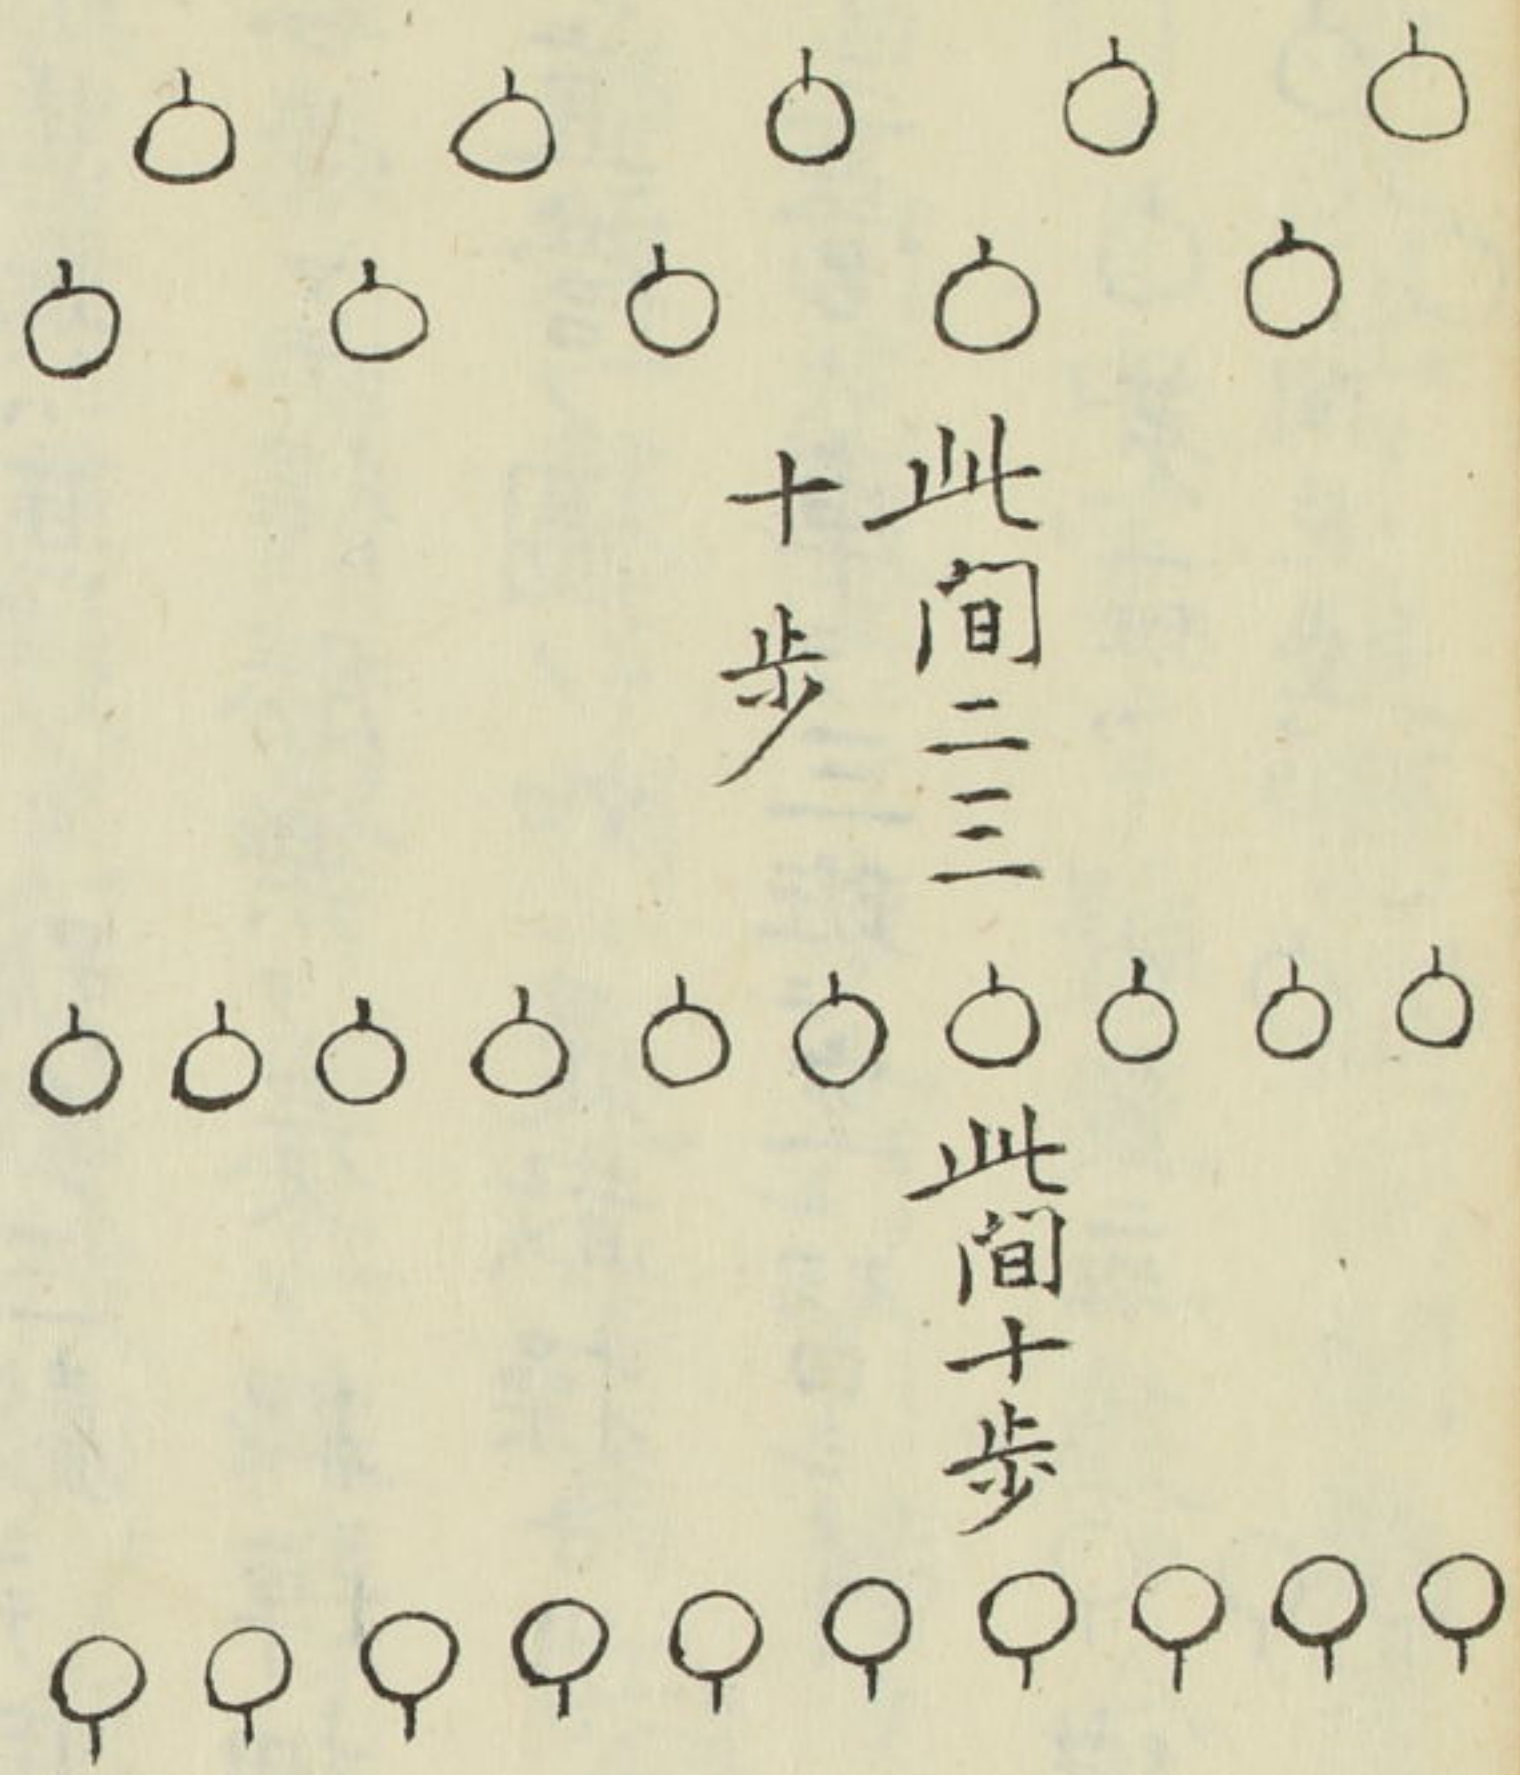 此间二三
十步
此间十步